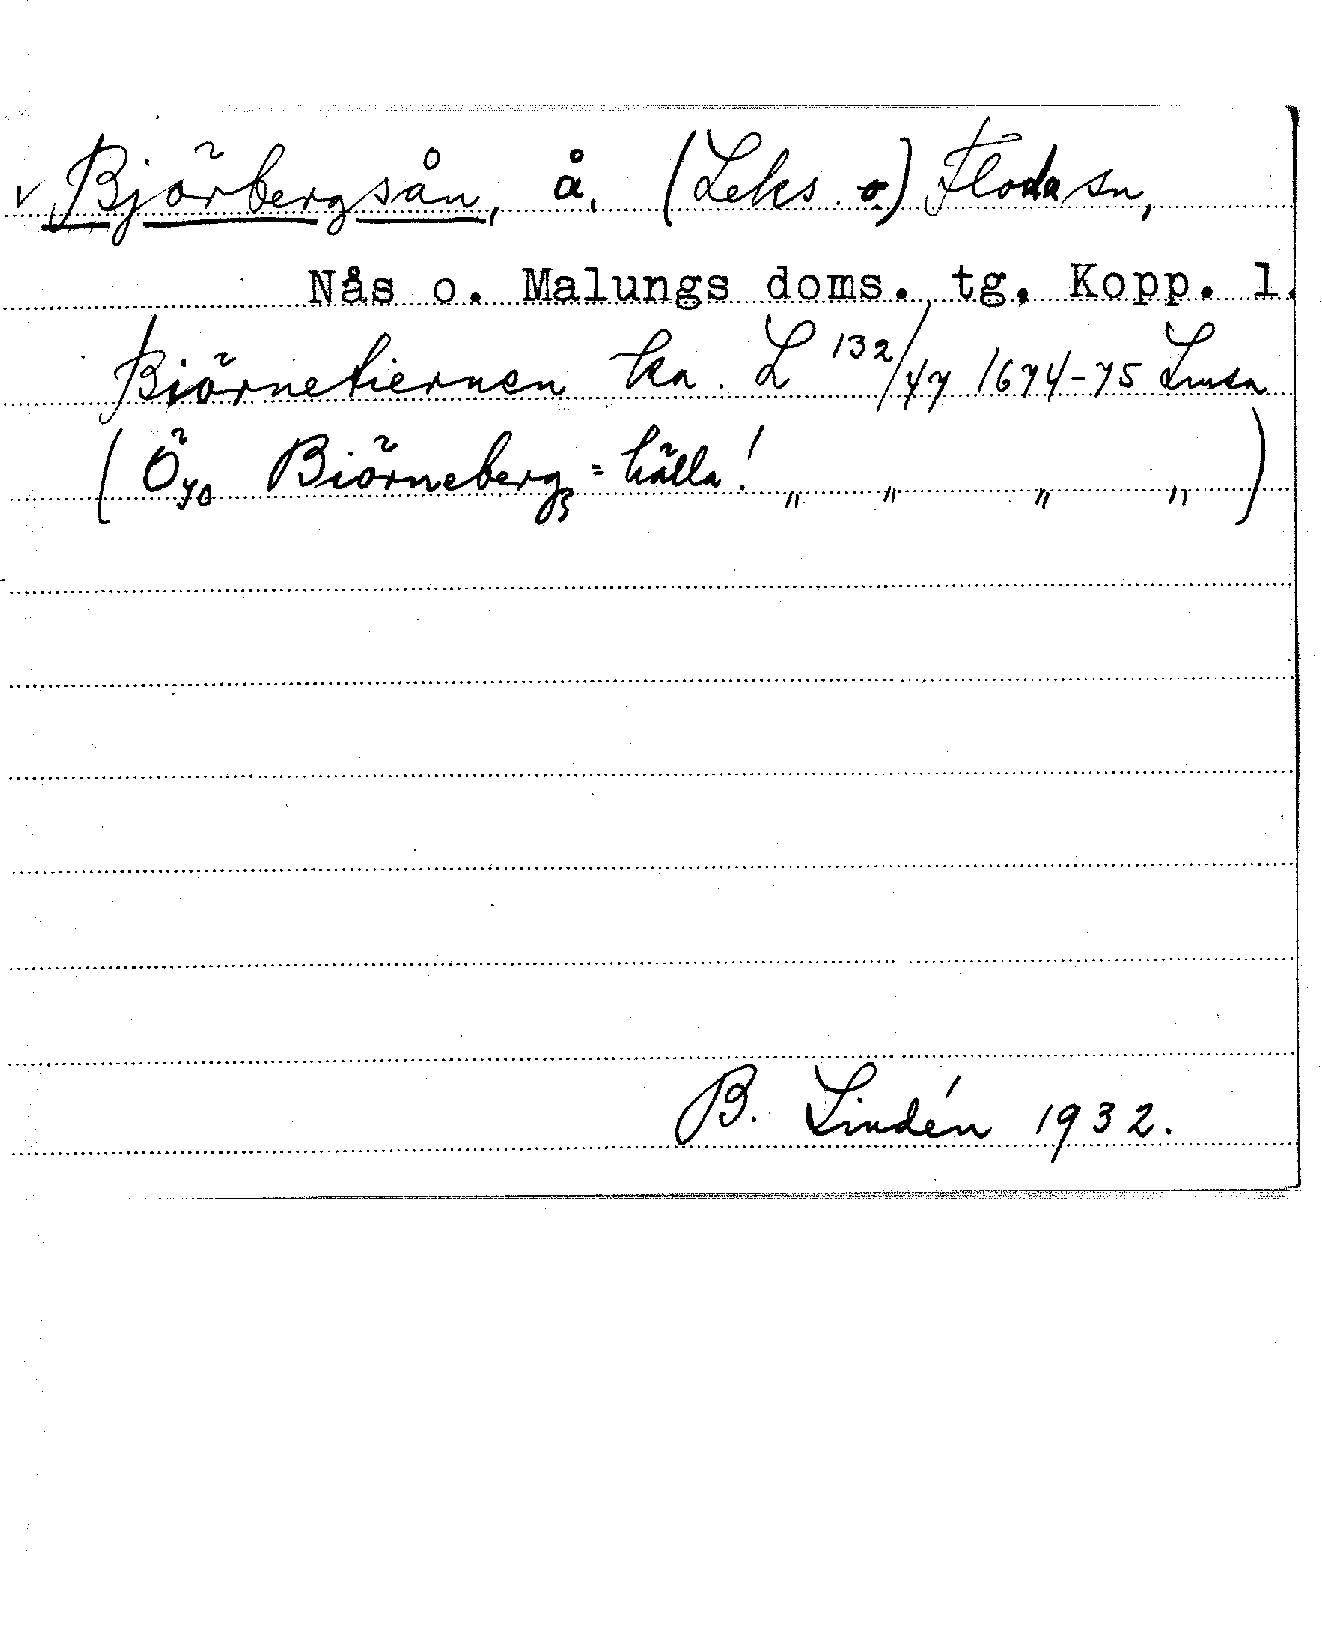 v Björbergsån, å, (Leks. o) Floda sn,
Nås o. Malungs doms. tg. Kopp. l.
Biörnetiernen ka. L 132/47 1674-75 Lmsa
(Öyo Biörneberg = hälla! " " " ")
B. Lindén 1932.